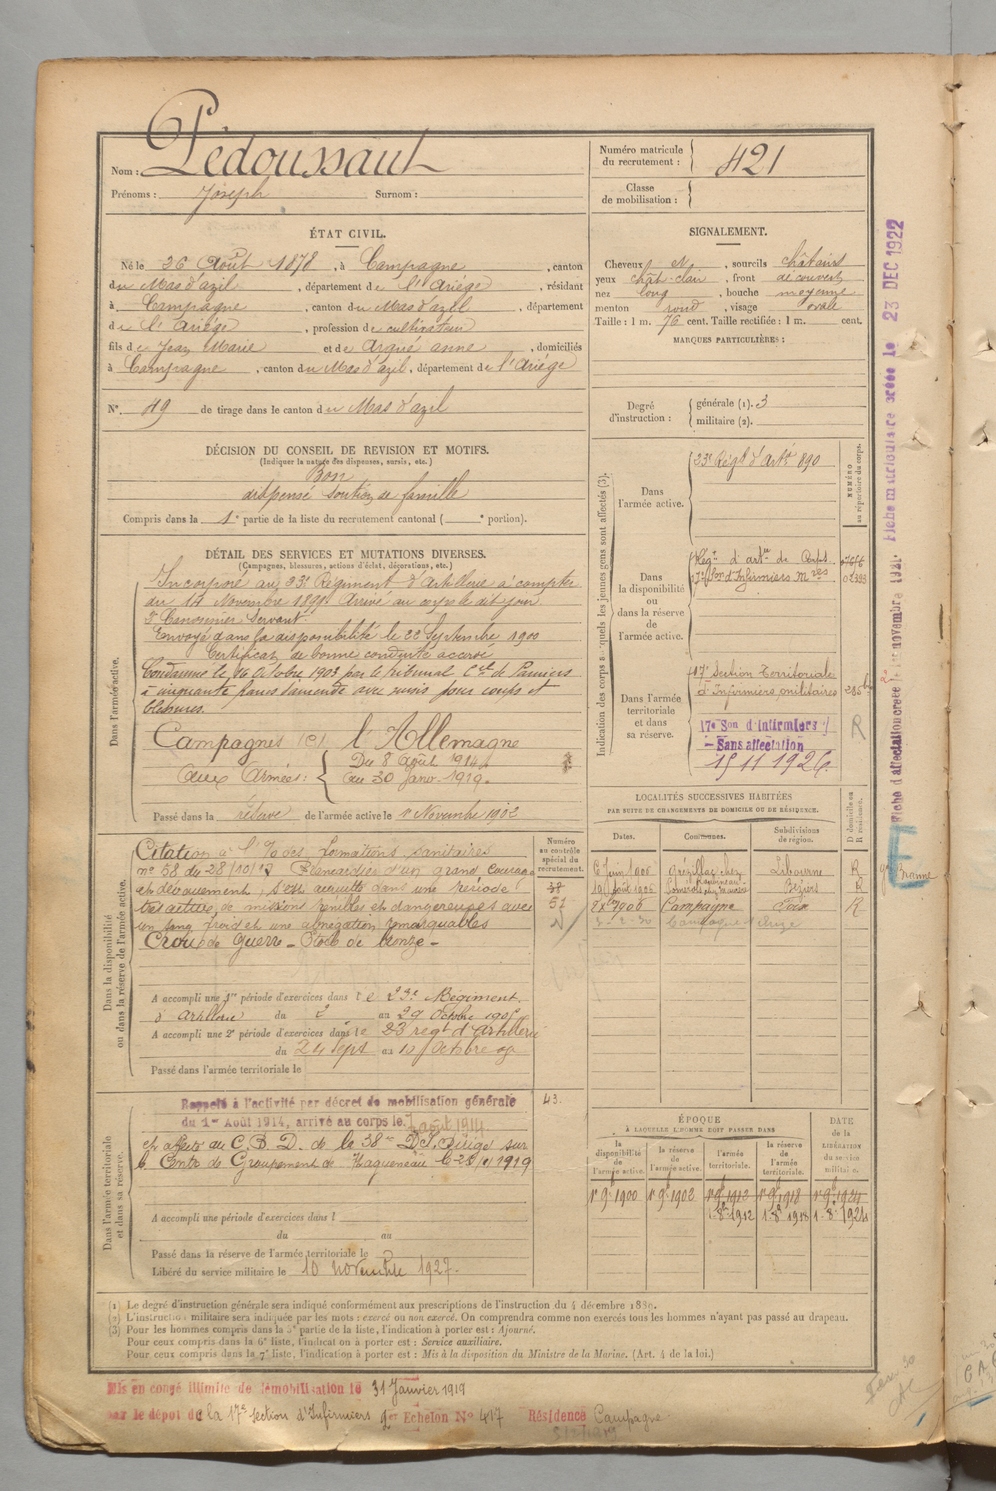 Nom : Pédoussaut
Prénoms : Joseph Surnom :
Numéro matricule du recrutement : 421
Classe de mobilisation :
ÉTAT CIVIL.
Né le 26 Août 1878, à Campagne, canton
du Mas d'azil, département de l'Ariège, résidant
à Campagne, canton du Mas d'azil, département
de l'Ariège, profession de cultivateur
fils de Jean Marie et de Argué anne, domiciliés
à Campagne, canton du Mas d'azil, département de l'Ariège
N° 49 de tirage dans le canton du Mas d'azil
SIGNALEMENT.
Cheveux N, sourcils châtains
yeux chât-clair, front découvert
nez long, bouche moyenne
menton rond, visage ovale
Taille : 1 m. 76 cent. Taille rectifiée : 1 m. cent.
MARQUES PARTICULIÈRES :
Degré d'instruction : générale (1). 3
militaire (2).
DÉCISION DU CONSEIL DE REVISION ET MOTIFS.
(Indiquer la nature des dispenses, sursis, etc.)
Bon
dispensé soutien de famille
Compris dans la 1e partie de la liste du recrutement cantonal ( e portion).
DÉTAIL DES SERVICES ET MUTATIONS DIVERSES.
(Campagnes, blessures, actions d'éclat, décorations, etc.)
Dans l'armée active.
Incorporé au 23e Régiment d'Artillerie à compter
du 14 Novembre 1899. Arrivé au corps le dit jour
2e Canonnier Servant.
Envoyé dans la disponibilité le 22 Septembre 1900
Certificat de bonne conduite accordé
Condamné le 14 Octobre 1902 par le tribunal Cel de Pamiers
à cinquante francs d'amende avec sursis pour coups et
blessures.
Campagnes contre l'Allemagne
Aux Armées : Du 8 août 1914
au 30 Janv. 1919.
Passé dans la réserve de l'armée active le 1er Novembre 1902
Indication des corps auxquels les jeunes gens sont affectés (3).
NUMÉRO au répertoire du corps.
Dans l'armée active.
23e Régt d'Artie 890
Dans la disponibilité ou dans la réserve de l'armée active.
Régt d'artie de Corps
17e Son d'Infirmiers Mres
Dans l'armée territoriale et dans sa réserve.
17e Section Territoriale
d'Infirmiers militaires
17e Son d'Infirmiers
Sans affectation
15 11 1926.
R
LOCALITÉS SUCCESSIVES HABITÉES
PAR SUITE DE CHANGEMENTS DE DOMICILE OU DE RÉSIDENCE.
Dates. Communes. Subdivisions de région. D domicile ou R résidence.
6 Juin 1905 Libourne R
Béziers R
Campagne Foix R
Numéro au contrôle spécial du recrutement.
38
51
43.
Dans la disponibilité ou dans la réserve de l'armée active.
Citation à l'O des formations sanitaires
n° 58 du 28/10/17 Brancardier d'un grand courage
et dévouement, s'est acquitté dans une période
très active, de missions pénibles et dangereuses avec
un sang froid et une abnégation remarquables
Croix de Guerre – Étoile de bronze –
A accompli une 1re période d'exercices dans le 23e Régiment
d'Artillerie du 2 au 29 Octobre 1905
A accompli une 2e période d'exercices dans le 23 regt d'Artillerie
du 24 Sept au 10 Octobre
Passé dans l'armée territoriale le
Dans l'armée territoriale et dans sa réserve.
Rappelé à l'activité par décret de mobilisation générale
du 1er Août 1914, arrivé au corps le 7 août 1914
et affecté au C.B.D. de la 38me D.I. Dirigé sur
le Centre de Groupement de Haguenau le
A accompli une période d'exercices dans l
du au
Passé dans la réserve de l'armée territoriale le
Libéré du service militaire le 10 novembre 1927.
ÉPOQUE
A LAQUELLE L'HOMME DOIT PASSER DANS
la disponibilité de l'armée active. la réserve de l'armée active. l'armée territoriale. la réserve de l'armée territoriale.
DATE de la LIBÉRATION du service militaire.
1er 9b 1900 1er 9b 1902 1er 9b 1912 1er 9b 1918 1er 9b 1924
1-8b 1912 1-8b 1918 1-8b 1924
(1) Le degré d'instruction générale sera indiqué conformément aux prescriptions de l'instruction du 4 décembre 1889.
(2) L'instruction militaire sera indiquée par les mots : exercé ou non exercé. On comprendra comme non exercés tous les hommes n'ayant pas passé au drapeau.
(3) Pour les hommes compris dans la 5e partie de la liste, l'indication à porter est : Ajourné.
Pour ceux compris dans la 6e liste, l'indication à porter est : Service auxiliaire.
Pour ceux compris dans la 7e liste, l'indication à porter est : Mis à la disposition du Ministre de la Marine. (Art. 4 de la loi.)
Mis en congé illimité de démobilisation le 31 Janvier 1919
par le dépôt de la 17e section d'Infirmiers 1er Echelon N° 417 Résidence Campagne
Fiche matriculaire créée le 23 DEC 1922